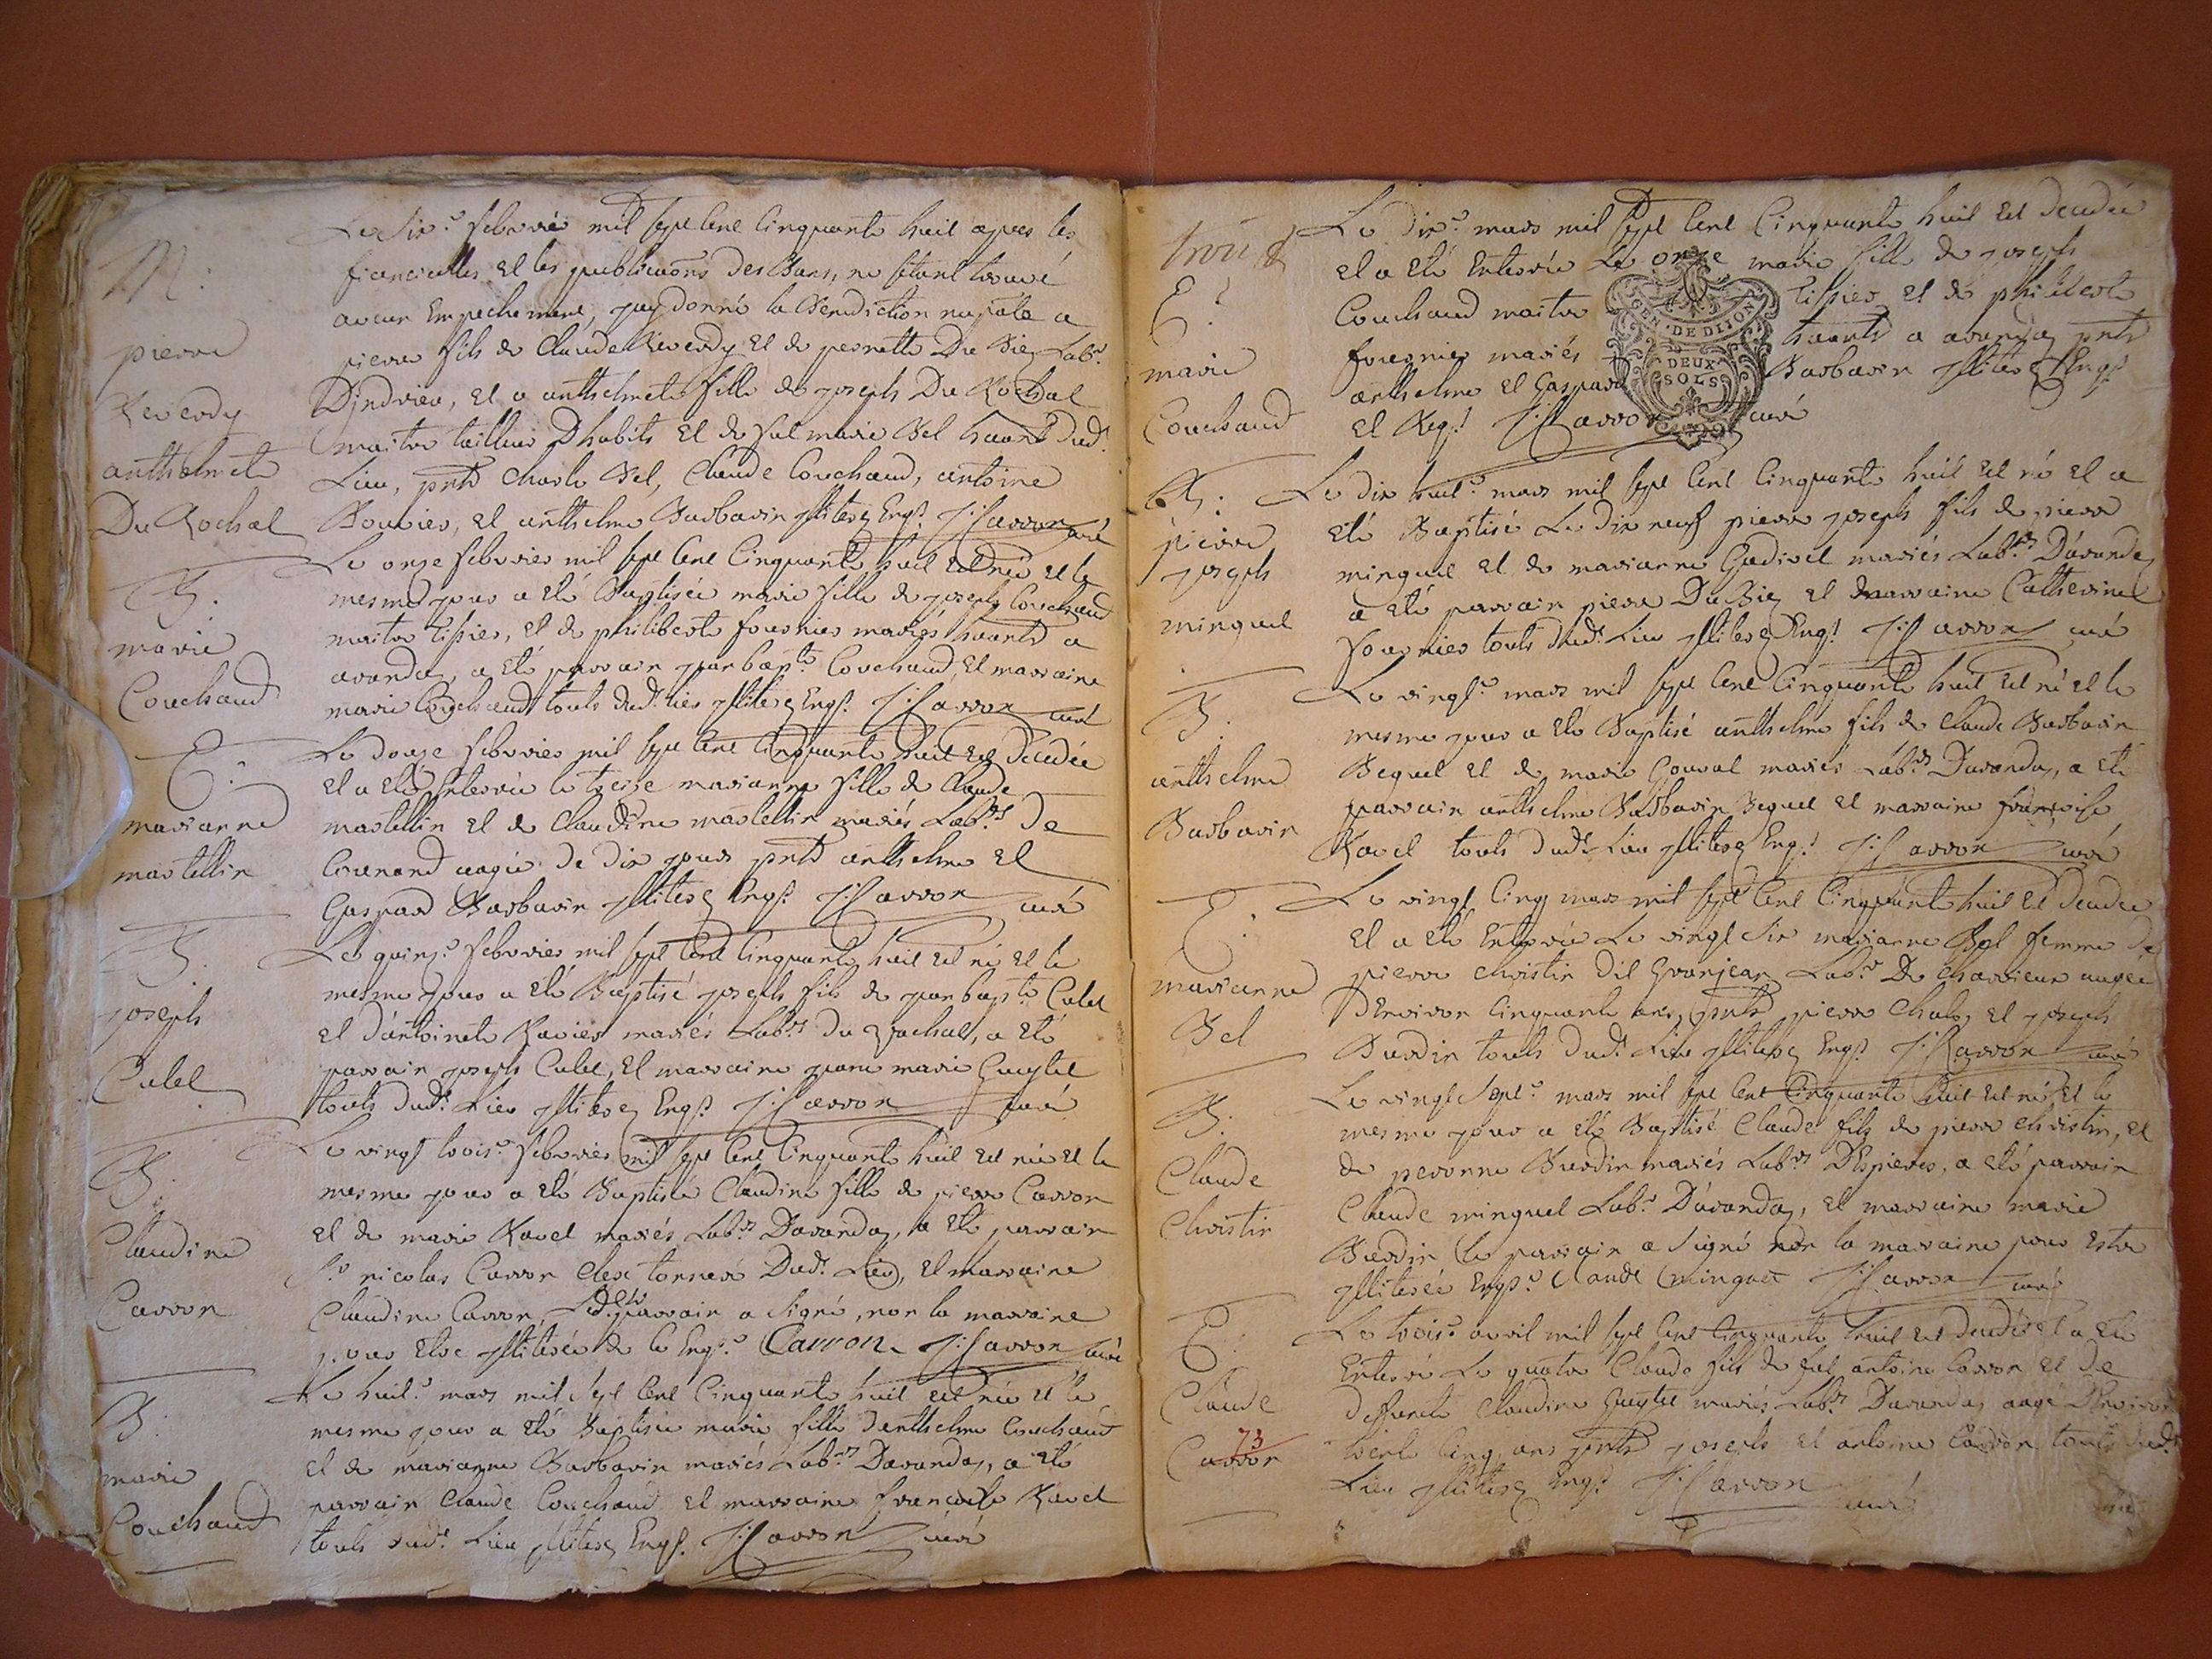 M:
pierre
Reverdy
anthelmete
Du Rochat
Le six.e febvrier mil sept cent cinquante huit apres les
fiancailles et les publications des bans, ne setant trouvé
aucun empechement, jay donné la benediction nuptale a
pierre fils de Claude Reverdy et de pernette Du Biez Lab.r
Dindrieu, et a anthelmete fille de joseph Du Rochat
maitre tailleur Dhabits et de fut marie Bel hants dud.t
Lieu, pnts Charle Bel, Claude Couchaud, antoine
Bouvier, et anthelme Barbarin jllites Eng.s J: Carron curé
B.
marie
Couchaud
Le onze febvrier mil sept cent cinquante huit est née et le
mesme jour a eté Baptisée marie fille de joseph Couchaud
maitre tissier, et de philiberte fournier mariés hants a
aranda, a eté parrain jean bap.te Couchaud, et marraine
marie Couchaud touts dud.t lieu jllites Eng.s J: Carron curé
E:
marianne
martellin
Le douze febvrier mil sept cent cinquante huit est decedée
et a eté Enterrée le treize marianne fille de Claude
martellin et de Claudine martellin mariés Lab.rs de
aagée de dix jours pnts anthelme et
Gaspard Barbarin jllites Eng.s J: Carron curé
B.
joseph
Culet
Le quinz.e febvrier mil sept cent cinquante huit est né et le
mesme jour a eté Baptisé joseph fils de jean bapt.e Culet
et dantoinete Ravier mariés Lab.rs du Rochat, a eté
parrain joseph Culet, et marraine jeane marie Guytet
touts dud.t Lieu jllites Eng.s J: Carron curé
B.
Claudine
Carron
Le vingt trois.e febvrier mil sept cent cinquante huit est née et le
mesme jour a eté Baptisée Claudine fille de pierre Carron
et de marie Ravet mariés Lab.rs Daranda, a eté parrain
S.r nicolas Carron clerc tonneré Dud.t Lieu, et marraine
Claudine Carron, parrain a signé, non la marraine
pour etre jllitérée de ce Enq.e Carron J: Carron curé
B.
marie
Couchaud
Le huit.e mars mil sept cent cinquante huit est née et le
mesme jour a eté Baptisée marie fille danthelme Couchaud
et de marianne Barbarin mariés Lab.rs Daranda, a eté
parrain Claude Couchaud et marraine francoise Ravet
touts dud.t Lieu jllites Eng.s J: Carron curé
trois
E:
marie
Couchaud
Le dix.e mars mil sept cent cinquante huit est decedée
et a eté Enterrée Le onze marie fille de joseph
Couchaud maitre tissier et de philiberte
fournier mariés hants a aranda pnts
anthelme et Gaspard Barbarin jllites Enq.s
et Req.s J: Carron curé
GEN · DE DIJON
DEUX
SOLS
B:
pierre
joseph
minguet
Le dix huit.e mars mil sept cent cinquante huit est né et a
eté Baptisé Le dix neuf pierre joseph fils de pierre
minguet et de marianne Gudivel mariés Lab.rs Daranda
a eté parrain pierre Du Biez et marraine Catherine
fournier touts dud.t Lieu jllites Enq.s J: Carron curé
B.
anthelme
Barbarin
Le vingt.e mars mil sept cent cinquante huit est né et le
mesme jour a eté Baptisé anthelme fils de Claude Barbarin
Bequet et de marie Gouvat mariés Lab.rs Daranda, a eté
parrain anthelme Barbarin Bequet et marraine francoise
Ravet touts dud.t Lieu jllites Enq.s J: Carron curé
E.
marianne
Bel
Le vingt cinq mars mil sept cent cinquante huit est decedée
et a eté Enterrée Le vingt six marianne Bel femme de
pierre Christin dit Granjean Lab.r De Charvieux aagée
Denviron cinquante ans, pnts pierre Chaley et joseph
Burdin touts dud.t Lieu jllites Enq.s J: Carron curé
B.
Claude
Christin
Le vingt sept.e mars mil sept cent cinquante huit est né et le
mesme jour a eté Baptisé Claude fils de pierre Christin, et
de peronne Burdin mariés Lab.rs Despieres, a eté parrain
Claude minguet Lab.r Daranda, et marraine marie
Burdin le parrain a signé non la marraine pour estre
jllitérée Enq.e Claude minguet J: Carron curé
E:
Claude
Carron
73
Le trois.e avril mil sept cent cinquante huit est decedé et a eté
Enterré Le quatre Claude fils de fut antoine Carron et de
deffuncte Claudine Guytet mariés Lab.rs Daranda, aagé Denviron
trente cinq ans pnts joseph et antoine Carron touts dud.t
Lieu jllites Enq.s J: Carron
curé